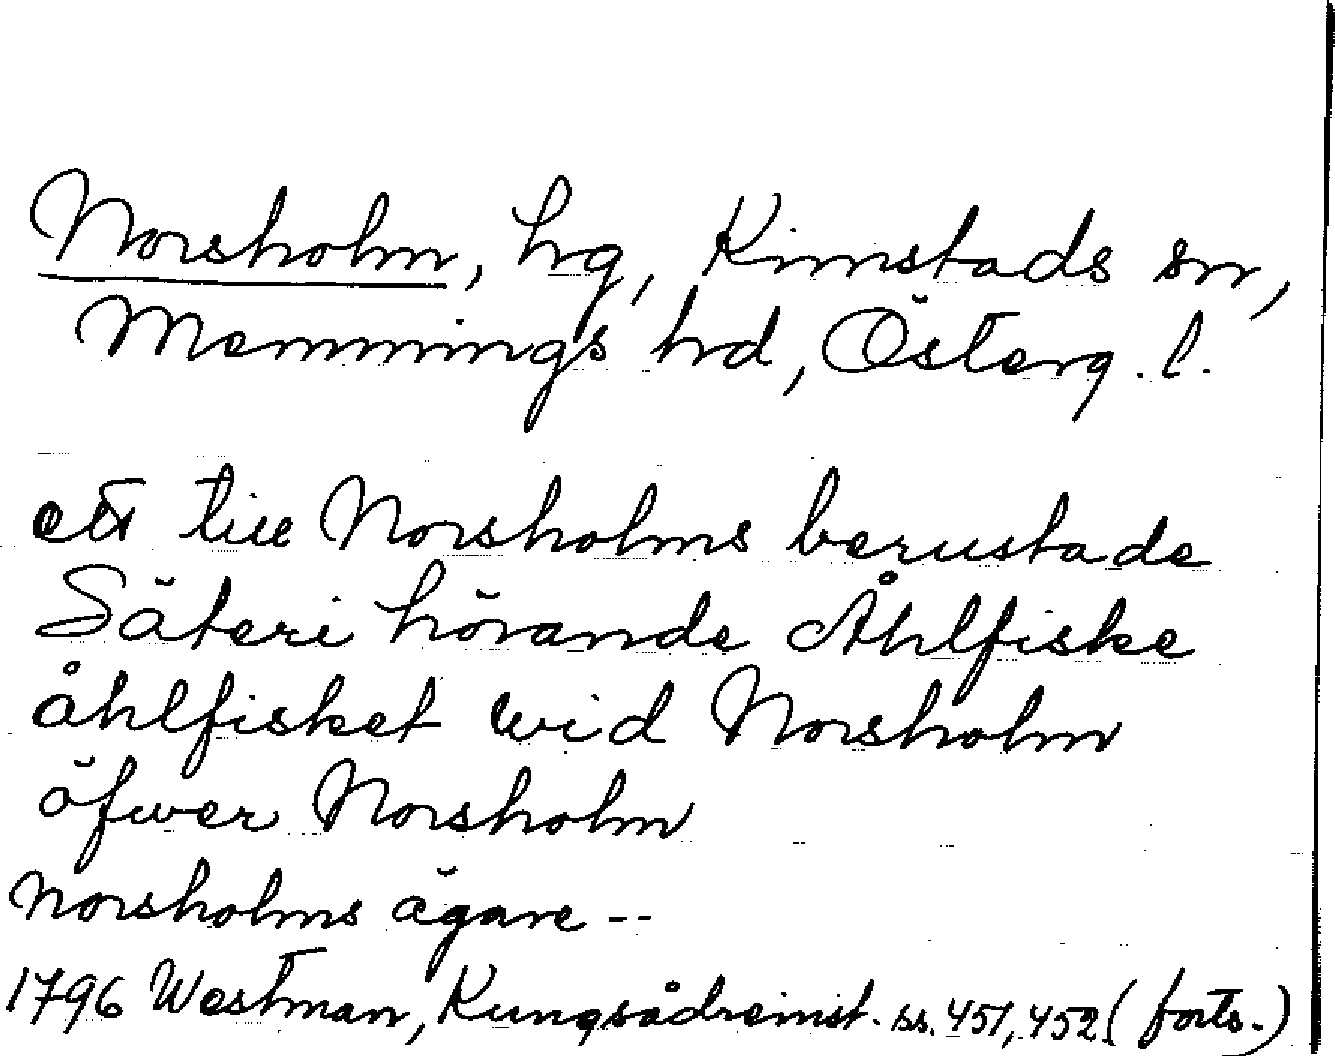 Norsholm, hg, Kimstads sn,
Memmings hd, Österg. l.
ett till Norsholms berustade
Säteri hörande Åhlfiske
åhlfisket wid Norsholm
öfwer Norsholm
Norsholms ägare --
1796 Westman, Kungsådreinst. ss. 451, 452 (forts.)